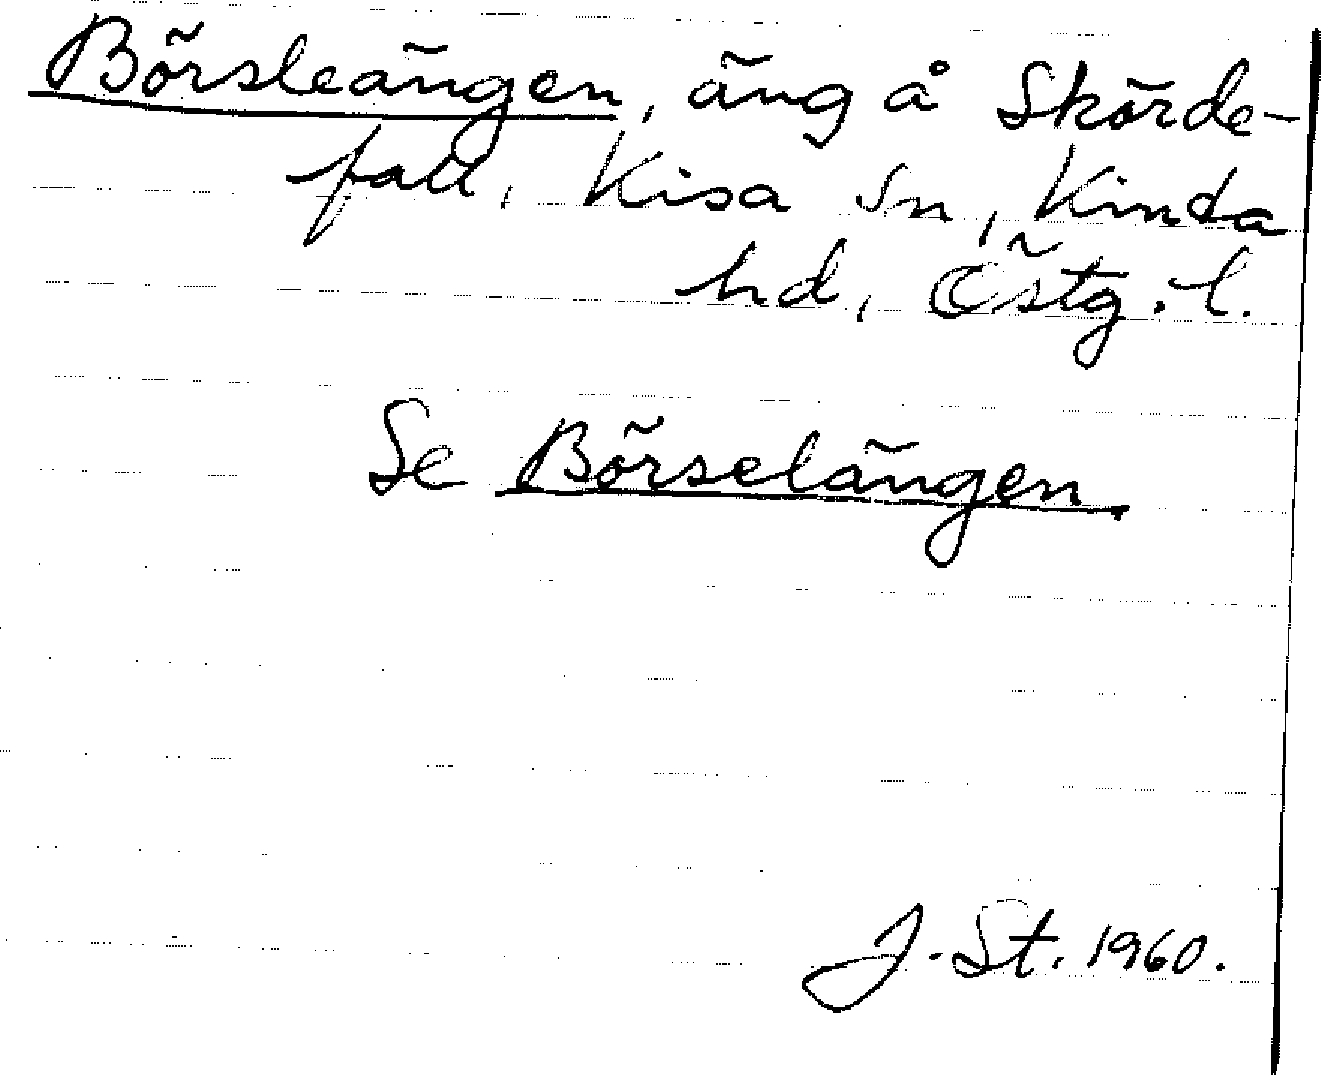 Börsleängen, äng å Skörde-
fall, Kisa sn, Kinda
hd, Östg. l.
Se Börselängen.
J. St. 1960.